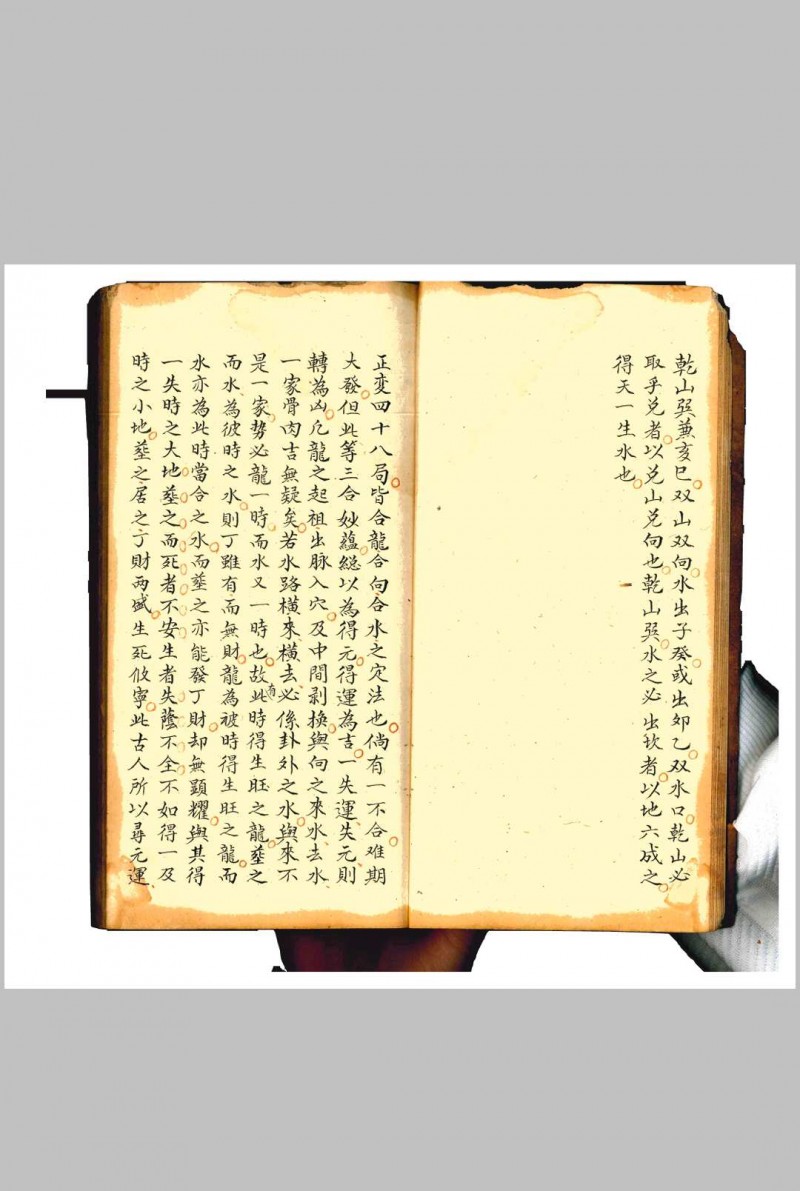 乾山巽蒹亥巳双山双向水出子癸或出卯乙双水口乾山必
取乎兑者以兑山兑向也乾山巽水之必出坎者以地六成之
得天一生水也
正变四十八局皆合龍合向合水之定法也倘有一不合难期
大發但此等三合妙蘊縂以為得元得運為吉一失運失元則
轉為凶凢龍之起祖出脉入穴及中間剥換與向之來水去水
一家骨肉吉無疑矣若水路橫來橫去必係卦外之水與來不
是一家势必龍一時而水又一時也故此時得生旺之龍塟之
而水為彼時之水則丁雖有而無財龍為被時得生旺之龍而
水亦為此時當合之水而塟之亦能發丁財却無顕耀與其得
一失時之大地塟之而死者不安生者失蔭不全不如得一及
時之小地塟之居之丁財両盛生死攸寧此古人所以尋元運